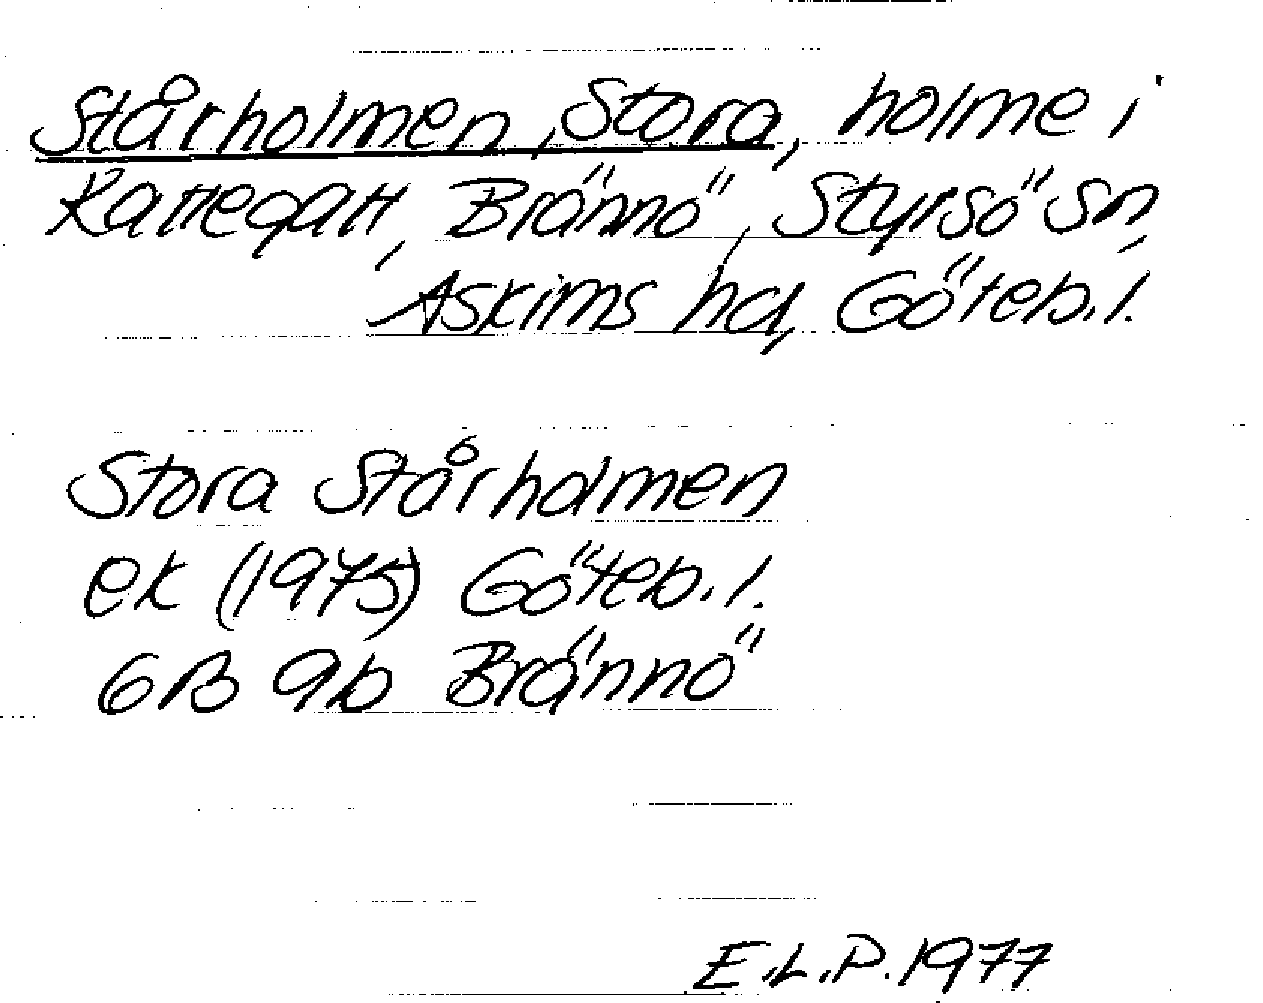 Stårholmen, Stora, holme i
Kattegatt, Brännö, Styrsö sn,
Askims hd, Göteb.l.
Stora Stårholmen
ek (1975) Göteb.l.
6B 9b Brännö
E.L.P. 1977